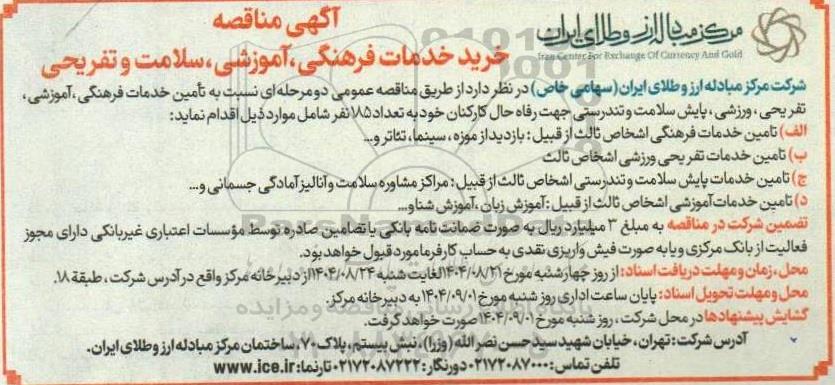 مرکز مبادله ارز و طلای ایران
Iran Center For Exchange Of Currency And Gold
آگهی مناقصه
خرید خدمات فرهنگی، آموزشی، سلامت و تفریحی
شرکت مرکز مبادله ارز و طلای ایران (سهامی خاص) در نظر دارد از طریق مناقصه عمومی دو مرحله ای نسبت به تأمین خدمات فرهنگی، آموزشی،
تفریحی، ورزشی، پایش سلامت و تندرستی جهت رفاه حال کارکنان خود به تعداد ۱۸۵ نفر شامل موارد ذیل اقدام نماید:
الف) تامین خدمات فرهنگی اشخاص ثالث از قبیل: بازدید از موزه، سینما، تئاتر و...
ب) تامین خدمات تفریحی ورزشی اشخاص ثالث
ج) تامین خدمات پایش سلامت و تندرستی اشخاص ثالث از قبیل: مراکز مشاوره سلامت و آنالیز آمادگی جسمانی و...
د) تامین خدمات آموزشی اشخاص ثالث از قبیل: آموزش زبان، آموزش شنا و...
تضمین شرکت در مناقصه به مبلغ ۳ میلیارد ریال به صورت ضمانت نامه بانکی یا تضامین صادره توسط مؤسسات اعتباری غیربانکی دارای مجوز
فعالیت از بانک مرکزی و یا به صورت فیش واریزی نقدی به حساب کارفرما مورد قبول خواهد بود.
محل، زمان و مهلت دریافت اسناد: از روز چهارشنبه مورخ ۱۴۰۴/۰۸/۲۱ لغایت شنبه ۱۴۰۴/۰۸/۲۴ از دبیرخانه مرکز واقع در آدرس شرکت، طبقه ۱۸.
محل و مهلت تحویل اسناد: پایان ساعت اداری روز شنبه مورخ ۱۴۰۴/۰۹/۰۱ به دبیرخانه مرکز.
گشایش پیشنهادها در محل شرکت، روز شنبه مورخ ۱۴۰۴/۰۹/۰۱ صورت خواهد گرفت.
آدرس شرکت: تهران، خیابان شهید سید حسن نصر الله (وزرا)، نبش بیستم، پلاک ۷۰، ساختمان مرکز مبادله ارز و طلای ایران.
تلفن تماس: ۰۲۱۷۲۰۸۷۰۰۰ دورنگار: ۰۲۱۷۲۰۸۷۲۲۲ تارنما: www.ice.ir